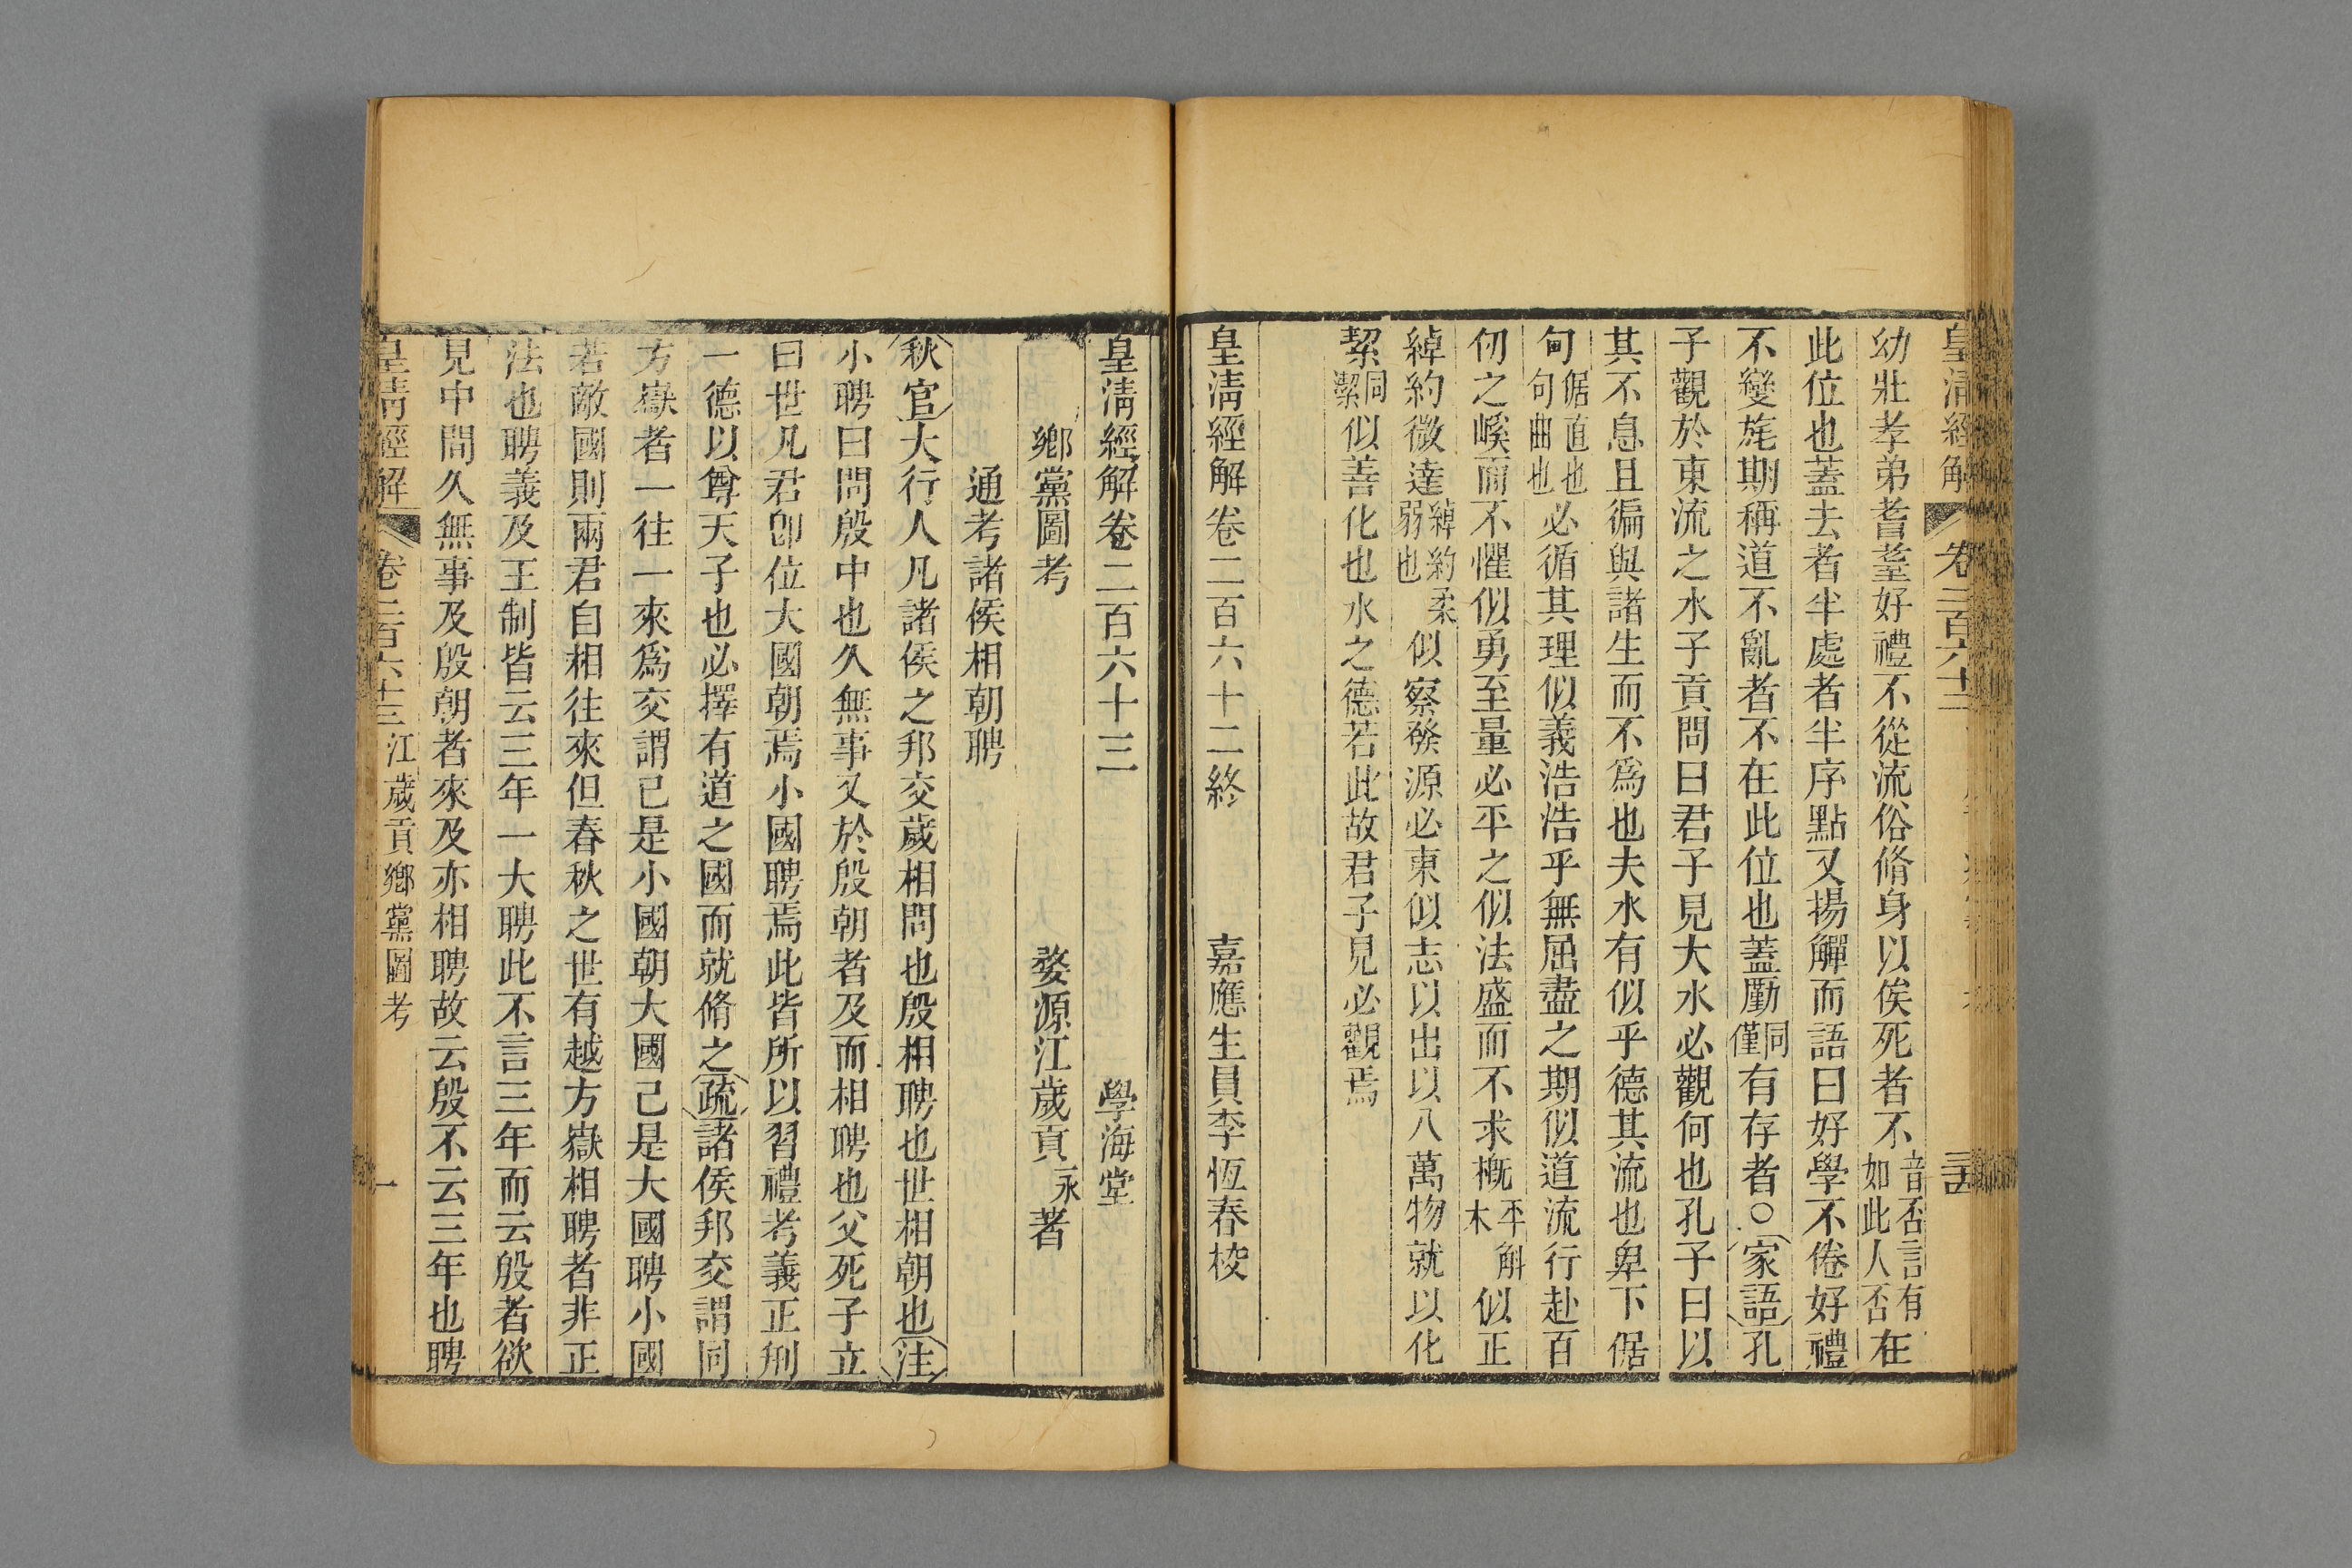 皇清經解 卷二百六十二
幼壯孝弟耆耋好禮不從流俗脩身以俟死者不音否言有如此人否在
此位也蓋去者半處者半序點又揚觶而語曰好學不倦好禮
不變旄期稱道不亂者不在此位也蓋廑同僅有存者○家語孔
子觀於東流之水子貢問曰君子見大水必觀何也孔子曰以
其不息且徧與諸生而不爲也夫水有似乎德其流也卑下倨
句倨直也句曲也必循其理似義浩浩乎無屈盡之期似道流行赴百
仞之嵠而不懼似勇至量必平之似法盛而不求槪平斛木似正
綽約微達綽約柔弱也似察發源必東似志以出以八萬物就以化
絜同潔似善化也水之德若此故君子見必觀焉
皇清經解卷二百六十二終 嘉應生員李恆春校
皇清經解卷二百六十三 學海堂
鄉黨圖考 婺源江歲貢永著
通考諸侯相朝聘
秋官大行人凡諸侯之邦交歲相問也殷相聘也世相朝也注
小聘曰問殷中也久無事又於殷朝者及而相聘也父死子立
曰世凡君卽位大國朝焉小國聘焉此皆所以習禮考義正刑
一德以尊天子也必擇有道之國而就脩之疏諸侯邦交謂同
方嶽者一往一來爲交謂己是小國朝大國己是大國聘小國
若敵國則兩君自相往來但春秋之世有越方嶽相聘者非正
法也聘義及王制皆云三年一大聘此不言三年而云殷者欲
見中間久無事及殷朝者來及亦相聘故云殷不云三年也聘
皇清經解 卷二百六十三 江歲貢鄉黨圖考 一